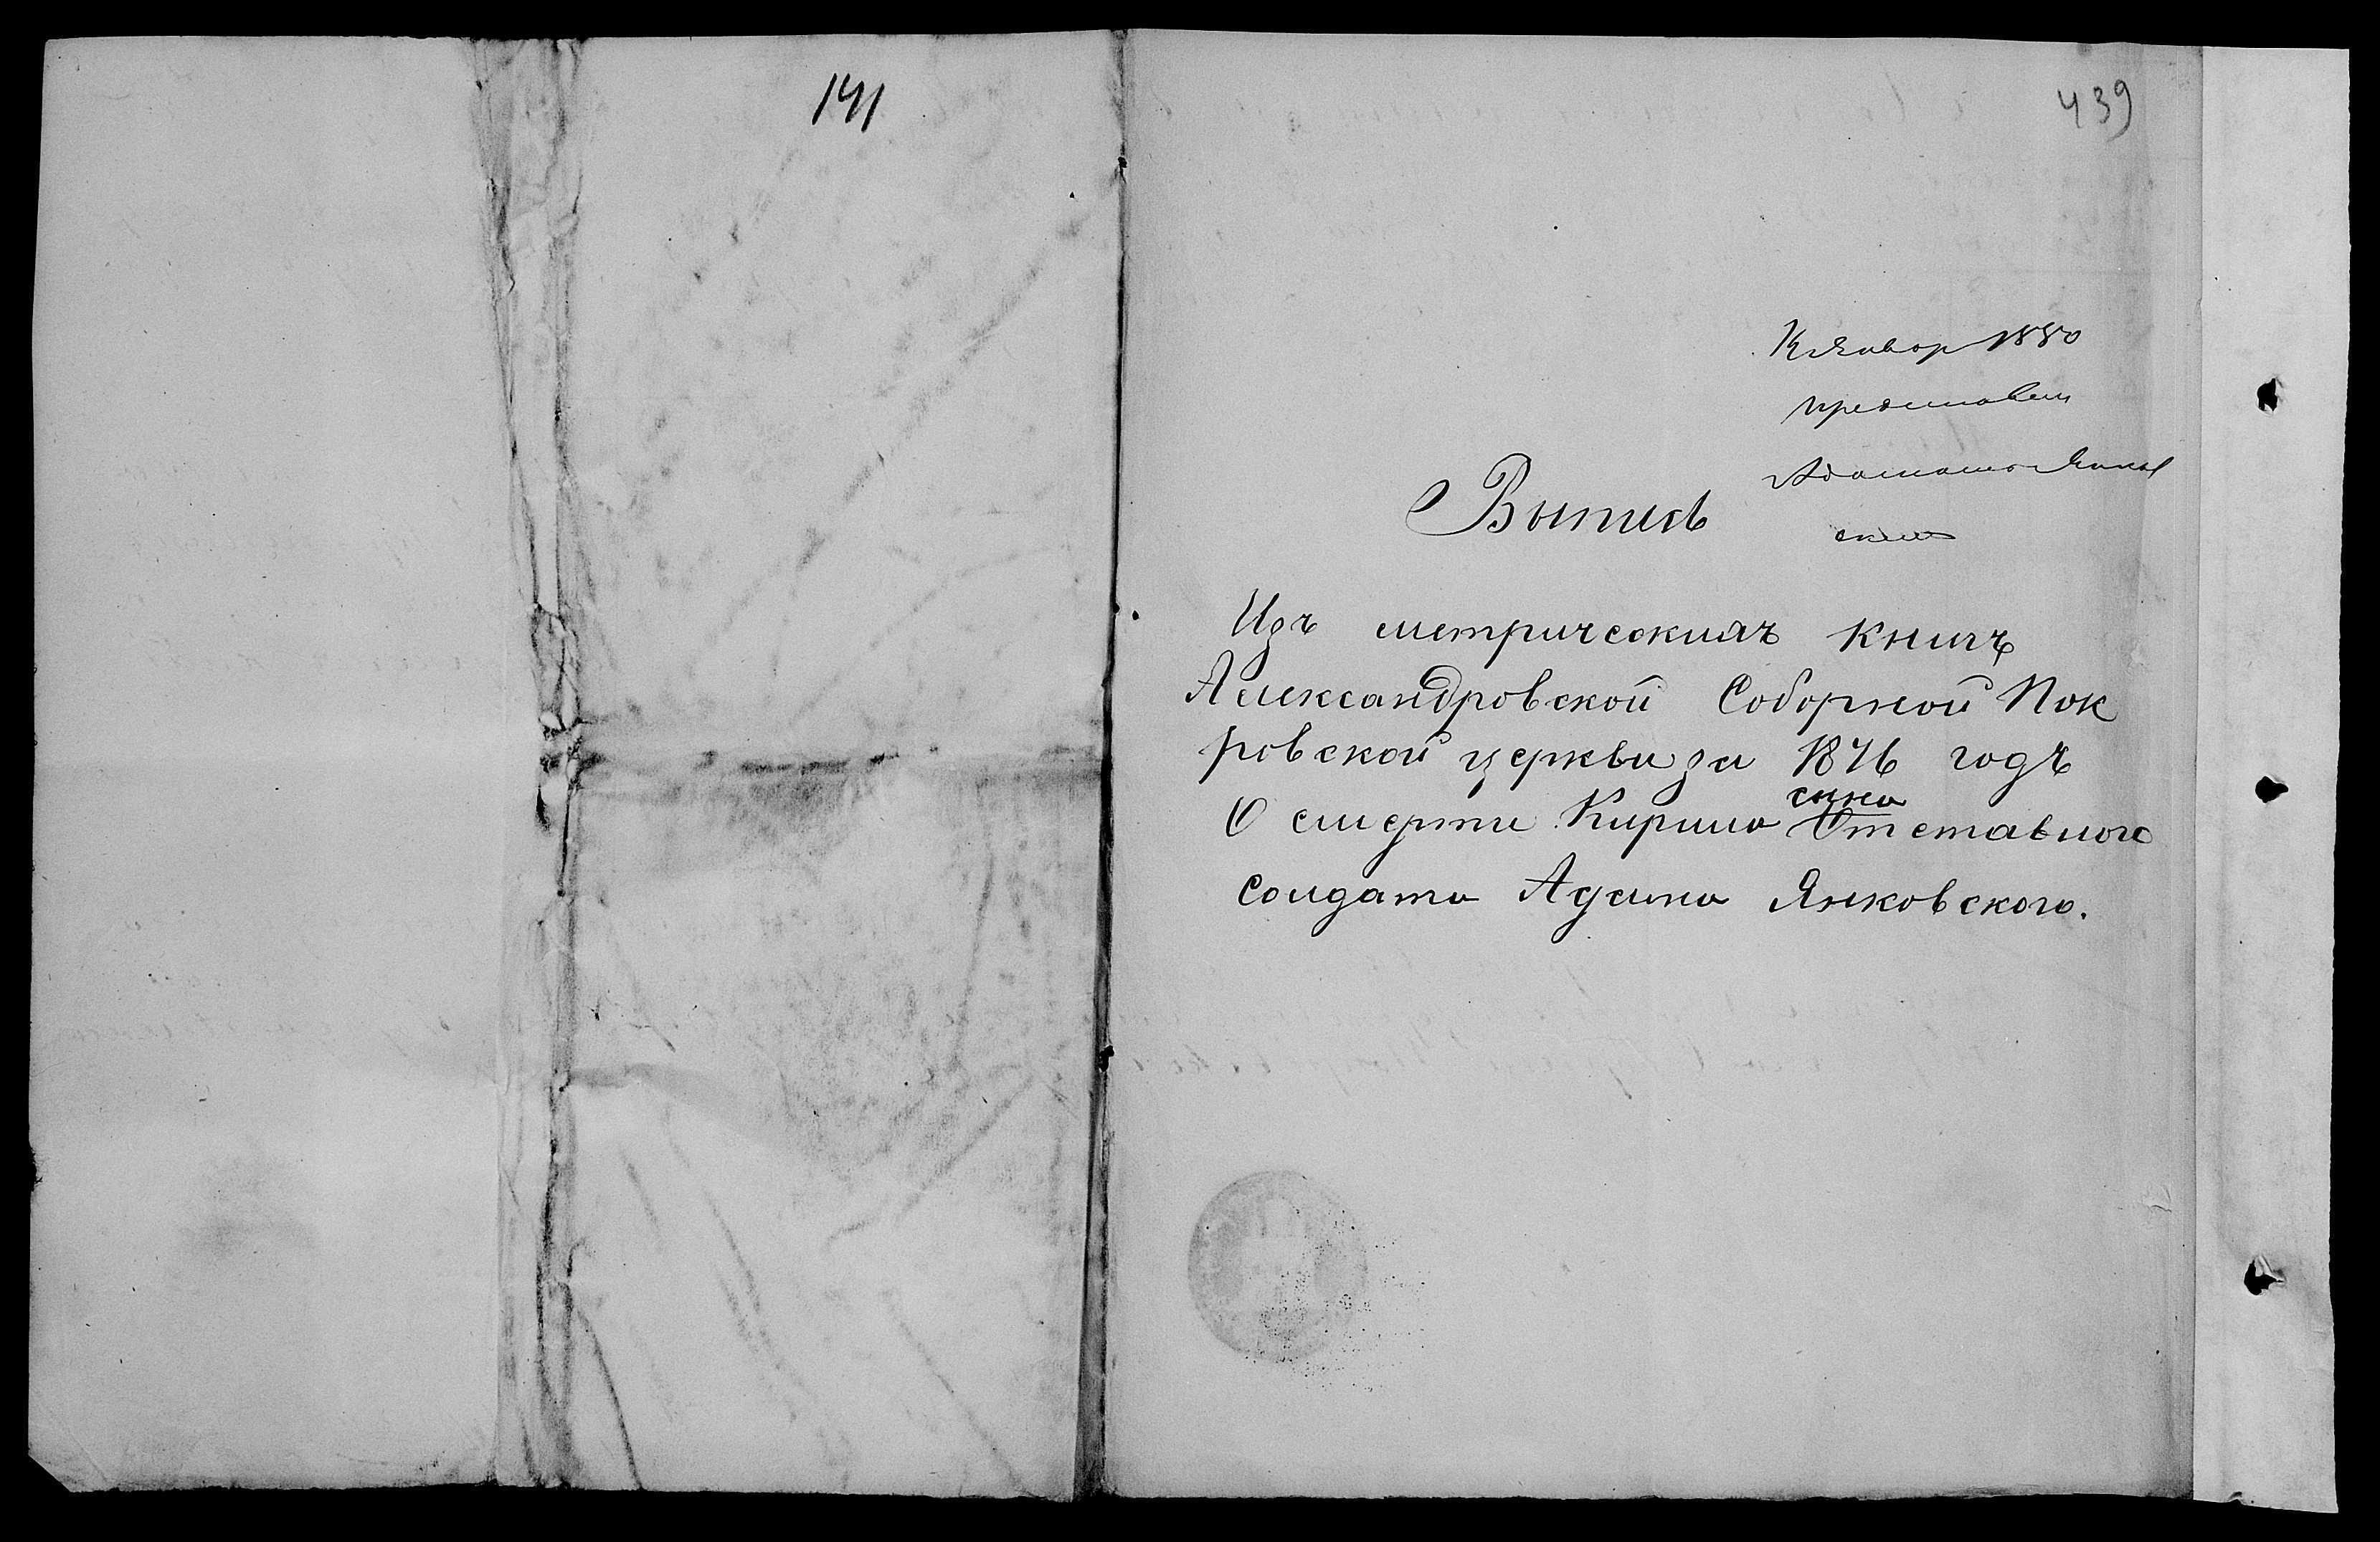 141
439
Январ 1880
представлен
Адамомъ Янков
скимъ
Выпись
Изъ метрическихъ книгъ
Александровской Соборной Пок
ровской церкви за 1876 годъ
сына
О смерти Кирила Отставного
солдата Адама Янковского.